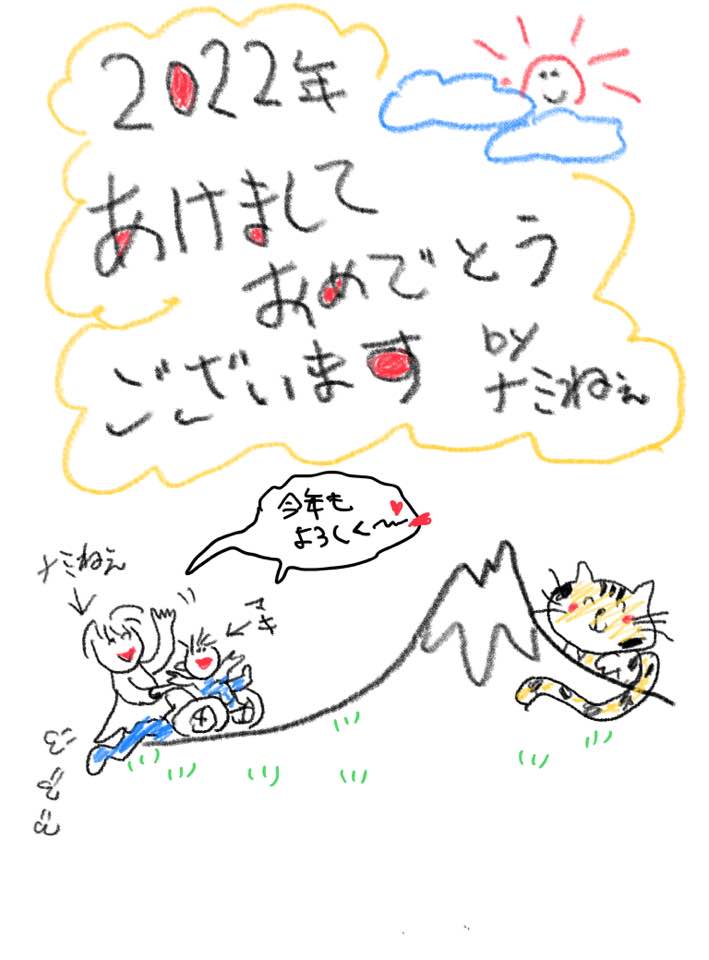 2022年
あけまして
おめでとう
ございます
by
ナミねぇ
今年も
よろしく〜
ナミねぇ
マキ